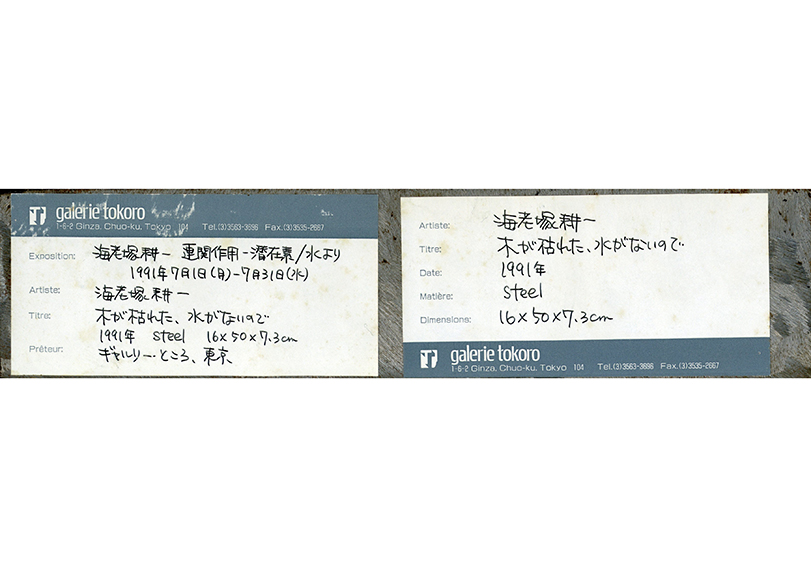 galerie tokoro
1-6-2 Ginza, Chuo-ku, Tokyo 104 Tel.(3)3563-3696 Fax.(3)3535-2687
Exposition: 海老塚耕一 連関作用-潜在裏/水より
1991年7月1日(月)-7月31日(水)
Artiste: 海老塚耕一
Titre: 木が枯れた、水がないので
1991年 steel 16×50×7.3cm
Prêteur: ギャルリー・ところ、東京
Artiste: 海老塚耕一
Titre: 木が枯れた、水がないので
Date: 1991年
Matière: steel
Dimensions: 16×50×7.3cm
galerie tokoro
1-6-2 Ginza, Chuo-ku, Tokyo 104 Tel.(3)3563-3696 Fax.(3)3535-2687